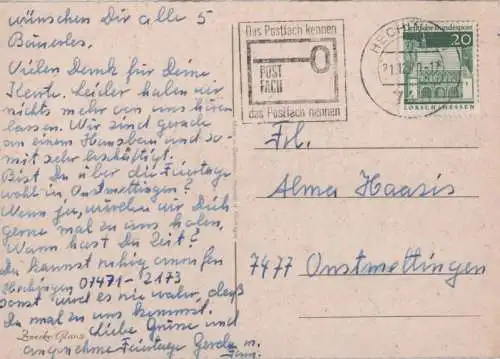 wünschen Dir alle 5
Bäuerles.
Vielen Dank für Deine
Karte. Leider haben wir
nichts mehr von uns hören
lassen. Wir sind gerade
an einem Hausbau und so-
mit sehr beschäftigt.
Bist Du über die Feiertage
wohl in Onstmettingen?
Wenn ja, würden wir Dich
gerne mal zu uns holen,
Wann hast Du Zeit?
Du kannst ruhig anrufen
Hechingen 07471-2173
sonst wird es nie wahr, daß
Du mal zu uns kommst.
Liebe Grüsse und
angenehme Feiertage Gerda u.
Das Postfach kennen
POST
FACH
das Postfach nennen
HECHIN
Deutsche Bundespost
20
LORSCH/HESSEN
Frl.
Alma Haasis
7477 Onstmettingen